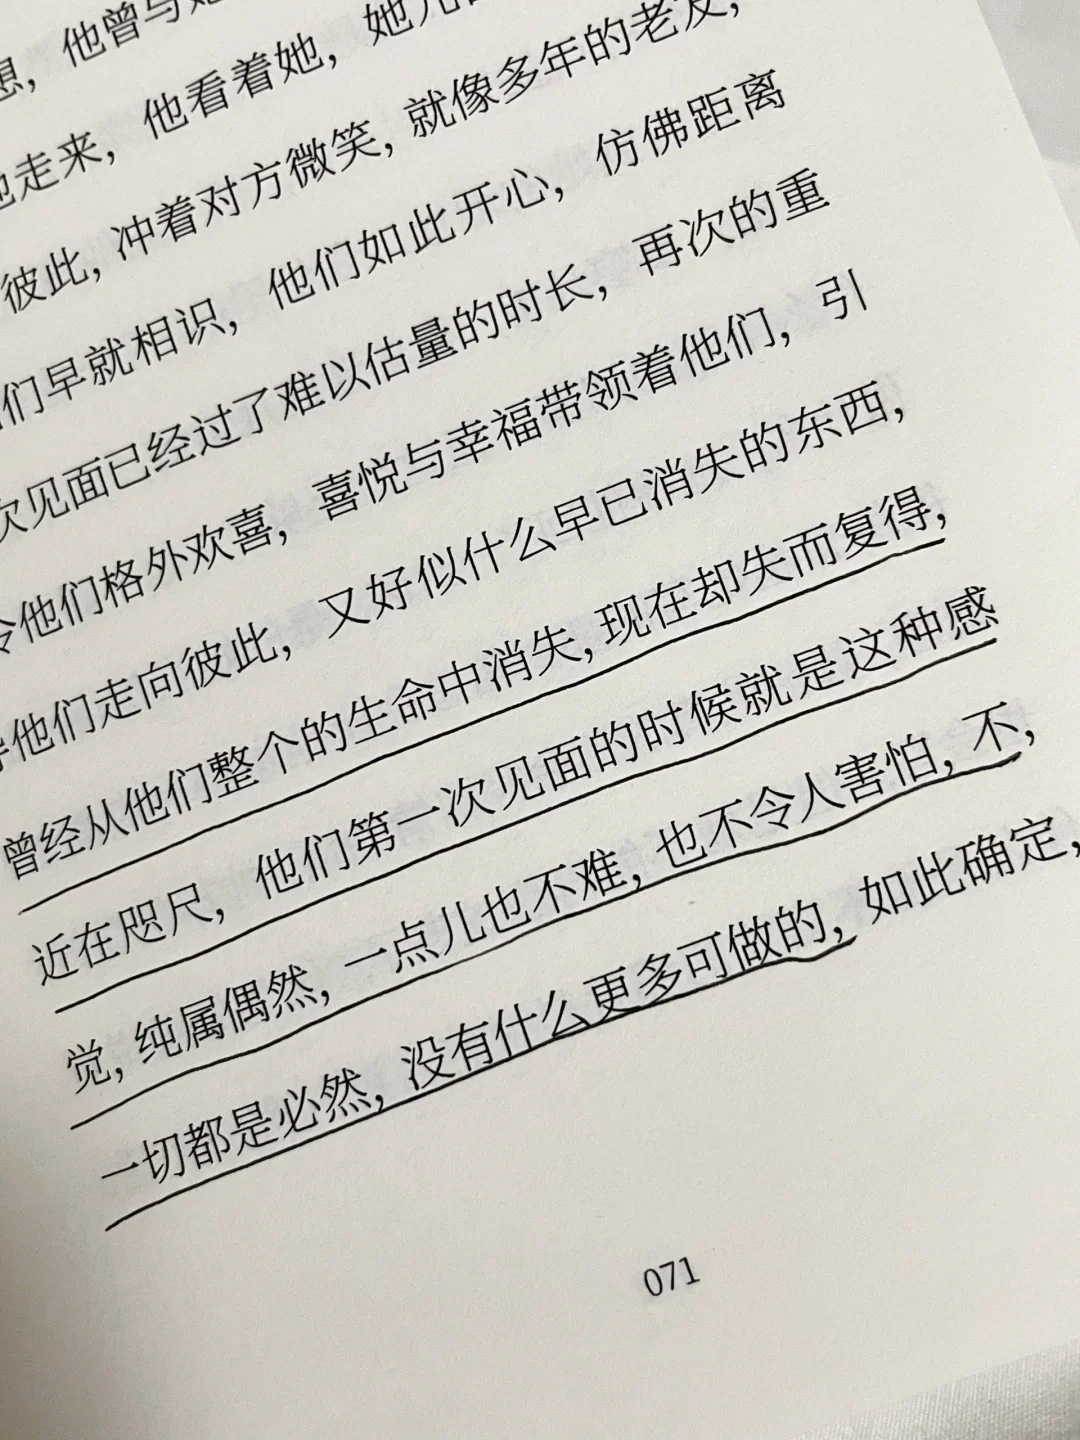 想, 他曾与她
他走来, 他看着她, 她几
彼此, 冲着对方微笑, 就像多年的老友,
们早就相识, 他们如此开心, 仿佛距离
次见面已经过了难以估量的时长, 再次的重
令他们格外欢喜, 喜悦与幸福带领着他们, 引
导他们走向彼此, 又好似什么早已消失的东西,
曾经从他们整个的生命中消失, 现在却失而复得,
近在咫尺, 他们第一次见面的时候就是这种感
觉, 纯属偶然, 一点儿也不难, 也不令人害怕, 不,
一切都是必然, 没有什么更多可做的, 如此确定,
071